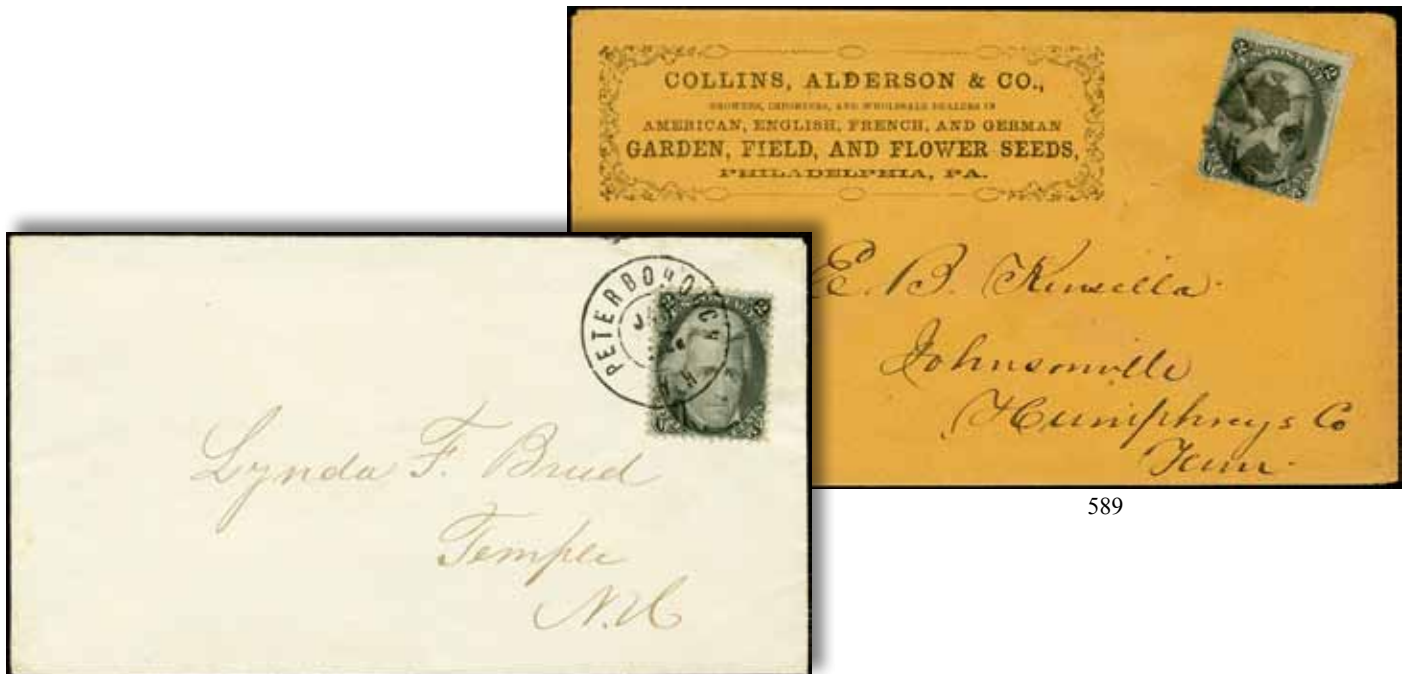 COLLINS, ALDERSON & CO.,
GROWERS, IMPORTERS, AND WHOLESALE DEALERS IN
AMERICAN, ENGLISH, FRENCH, AND GERMAN
GARDEN, FIELD, AND FLOWER SEEDS,
PHILADELPHIA, PA.
2 POSTAGE 2
E. B. Kinsella
Johnsonville
Humphreys Co
Tenn.
589
PETERBORO
N H
2 POSTAGE 2
Lynda F.
Temple
N.H